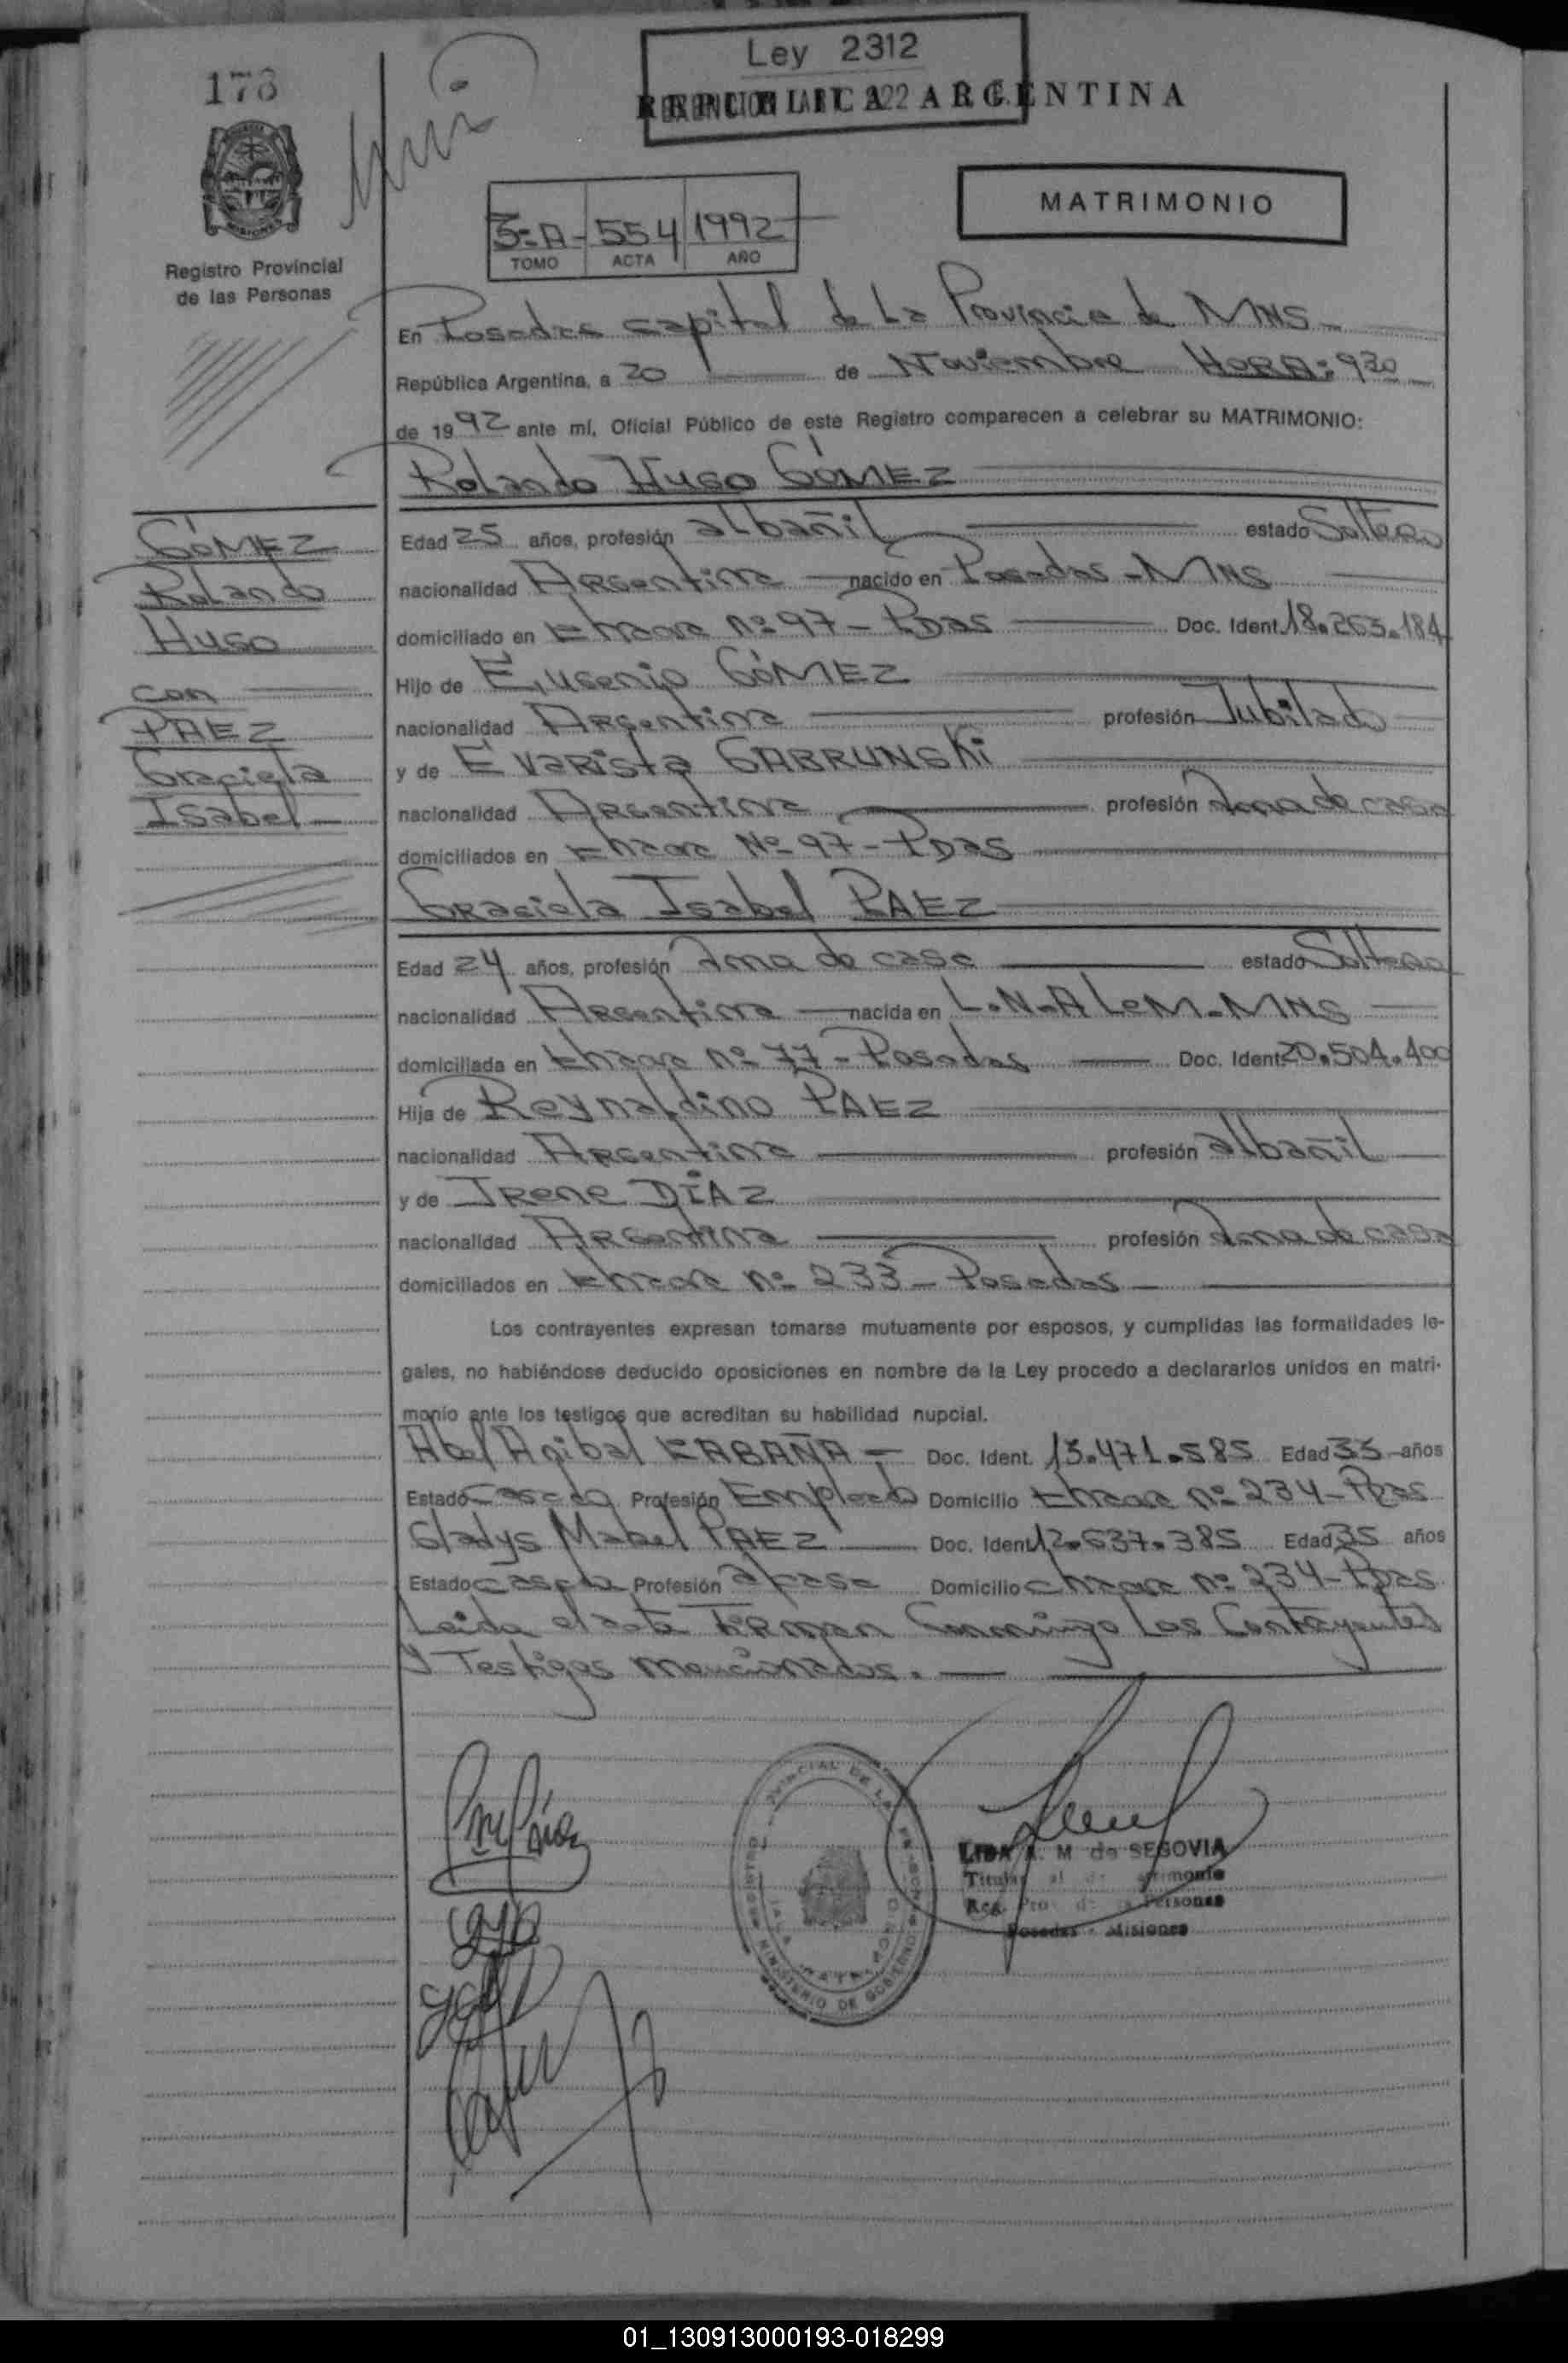 178
Ley 2312
REPUBLICA ARGENTINA
MATRIMONIO
3-A- 554 1992
TOMO ACTA AÑO
Registro Provincial
de las Personas
En Posadas capital de La Provincia de MNS
República Argentina, a 20 de Noviembre HORA: 930
de 1992 ante mí, Oficial Público de este Registro comparecen a celebrar su MATRIMONIO:
Rolando Hugo GÓMEZ
GÓMEZ
Rolando
Hugo
con
PAEZ
Graciela
Isabel
Edad 25 años, profesión albañil estado Soltero
nacionalidad Argentina nacido en Posadas - MNS
domiciliado en Chacra nº 97 - PDas Doc. Ident. 18.263.184
Hijo de Eugenio GÓMEZ
nacionalidad Argentina profesión Jubilado
y de Evarista GABRUNSKi
nacionalidad Argentina profesión Ama de casa
domiciliados en Chacra Nº 97 - PDas
Graciela Isabel PAEZ
Edad 24 años, profesión Ama de casa estado Soltera
nacionalidad Argentina nacida en L.N.ALeM-MNS
domiciliada en Chacra nº 77 - Posadas Doc. Ident. 20.504.400
Hija de Reynaldino PAEZ
nacionalidad Argentina profesión albañil
y de Irene DÍAZ
nacionalidad Argentina profesión Ama de casa
domiciliados en Chacra nº 233 - Posadas
Los contrayentes expresan tomarse mutuamente por esposos, y cumplidas las formalidades le-
gales, no habiéndose deducido oposiciones en nombre de la Ley procedo a declararlos unidos en matri-
monio ante los testigos que acreditan su habilidad nupcial.
Abel Anibal CABAÑA - Doc. Ident. 13.471.585 Edad 33 años
Estado Casado Profesión Empleado Domicilio Chacra nº 234 - PDas
Gladys Mabel PAEZ Doc. Ident. 12.637.385 Edad 35 años
Estado casada Profesión a/casa Domicilio chacra nº 234 - PDas
Leida el acta Firman Conmigo Los Contrayentes
y Testigos mencionados.
LIDA M de SEGOVIA
Posadas - Misiones
MINISTERIO DE GOBIERNO
01_130913000193-018299